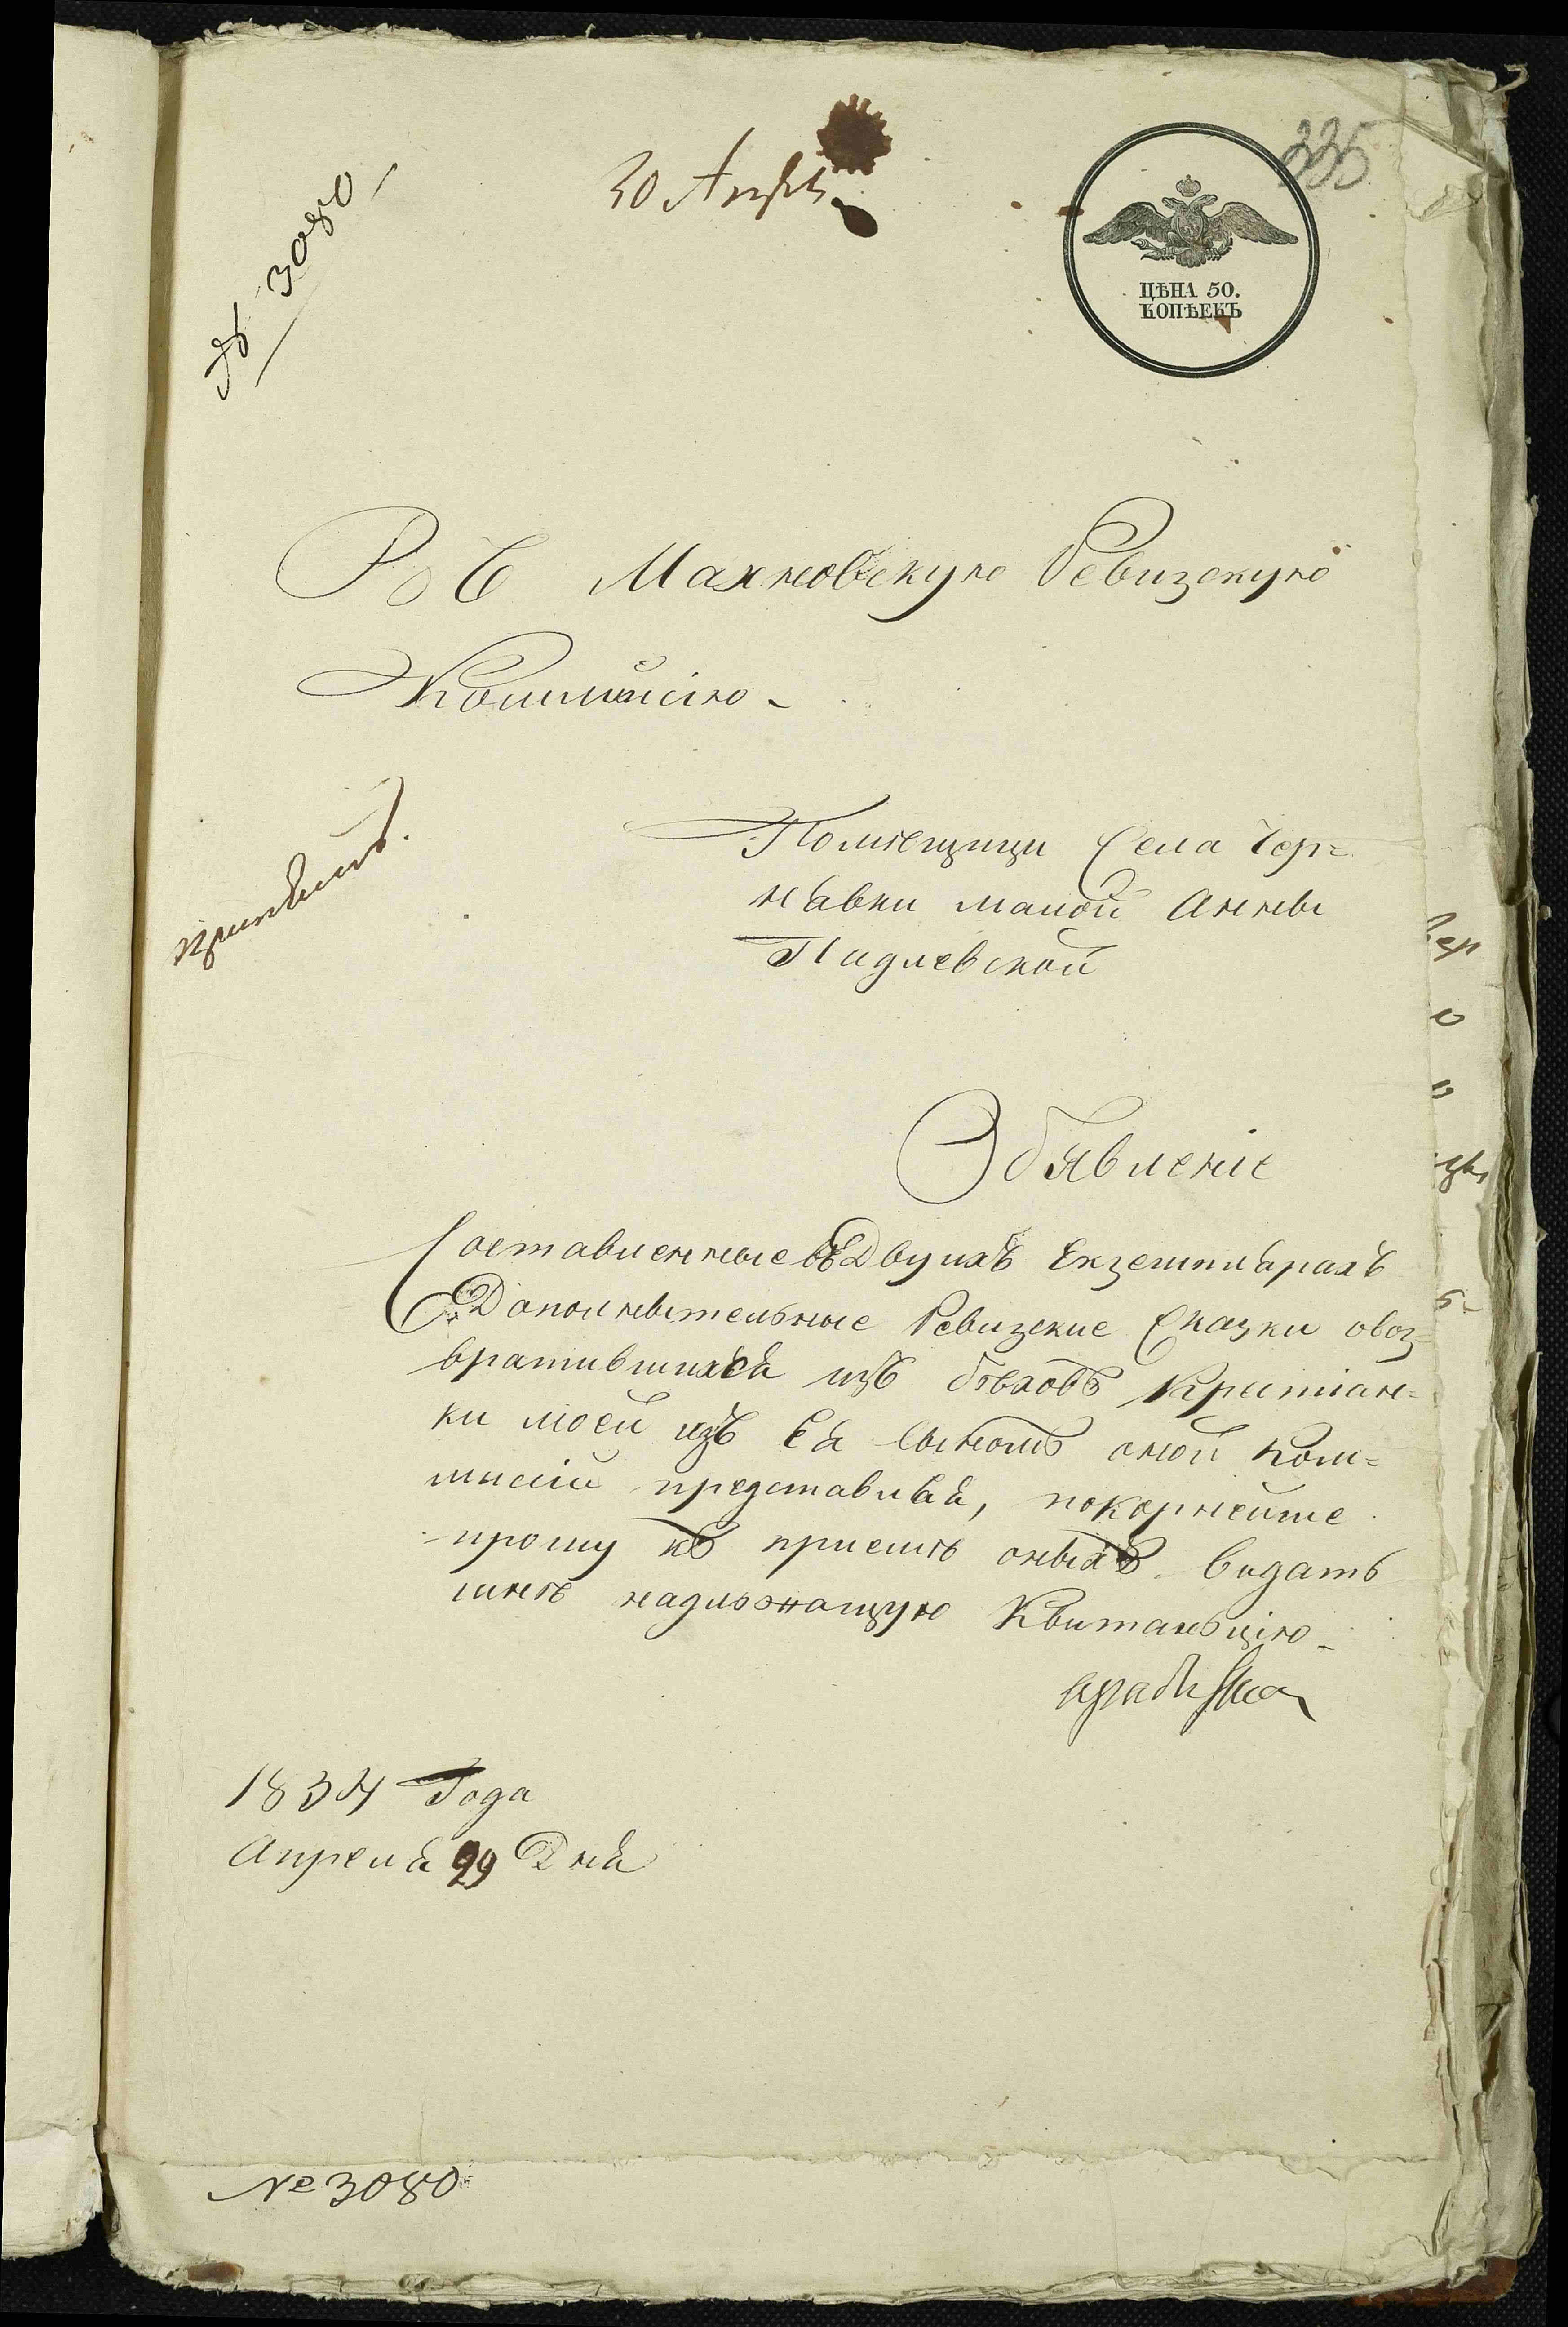 335
30 Апре
№ 3080
ЦѢНА 50.
КОПѢЕКЪ
Въ Махновскую Ревизскую
Коммисію
Помѣщици Села Чер=
навки малой Анны
Падлевской
Объявленіе
Составленные въ Двухъ Екземплярахъ
Дополнительные Ревизские Сказки овоз=
вратившихся изъ бѣховъ Крестіан=
ки моей изъ Ея Сыномъ оной Ком=
мисіи представляя, покорнейше
прошу въ приемѣ оныхъ видать
мнѣ надлѣжащую Квитанцію
1834 Года
Апреля 29 Дня
№ 3080